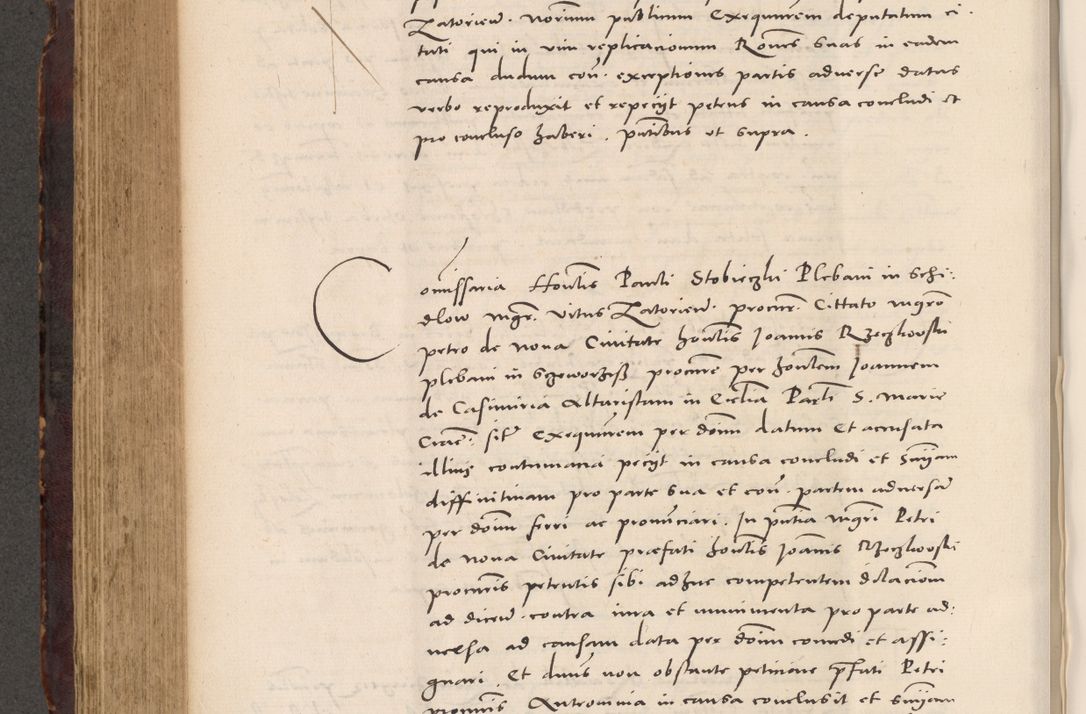 Zatoriew. Notarium publicum Exequutorem deputatum ci-
tati qui in vim replicacionum Rones suas in eadem
causa dudum con. exceptiones partis adverse datas
verbo reproduxit et repeciit petens in causa concludi et
pro concluso haberi. putibus ut supra.
Comissaria Honlis Pauli Stobieczki Plebani in Schi-
dlow Mgr. Vitus Zatoriew. procur. Cittato Mgro
petro de Nova Civitate honlis Joannis Rzeczkowski
plebani in procurē per honlem Joannem
de Casimiria Altaristam in Ecclia Parli S. Marie
Crac. sitᵗ Exequutorem per dominum datum Et accusata
illius contumacia peciit in causa concludi et sniam
diffinitivam pro parte sua et con. partem adversam
per dnm ferri ac pronunciari. In pntia Mgri Petri
de Nova Civitate praefati honlis Joannis Rzeczkowski
procuris petentis sibi adhuc competentem dilacionem
ad dicend. contra iura et munimenta pro parte ad-
versa ad causam data per dominum concedi et assi-
gnari. Et dnus non obstante peticione pfati Petri
procuris Antronima in causa conclusit et sniam